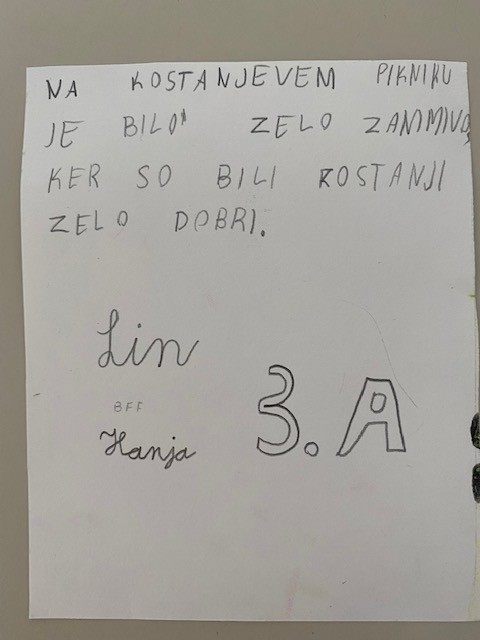 NA KOSTANJEVEM PIKNIKU
JE BILO ZELO ZANIMIVO,
KER SO BILI KOSTANJI
ZELO DOBRI.
Lin
BFF
Hanja
3. A